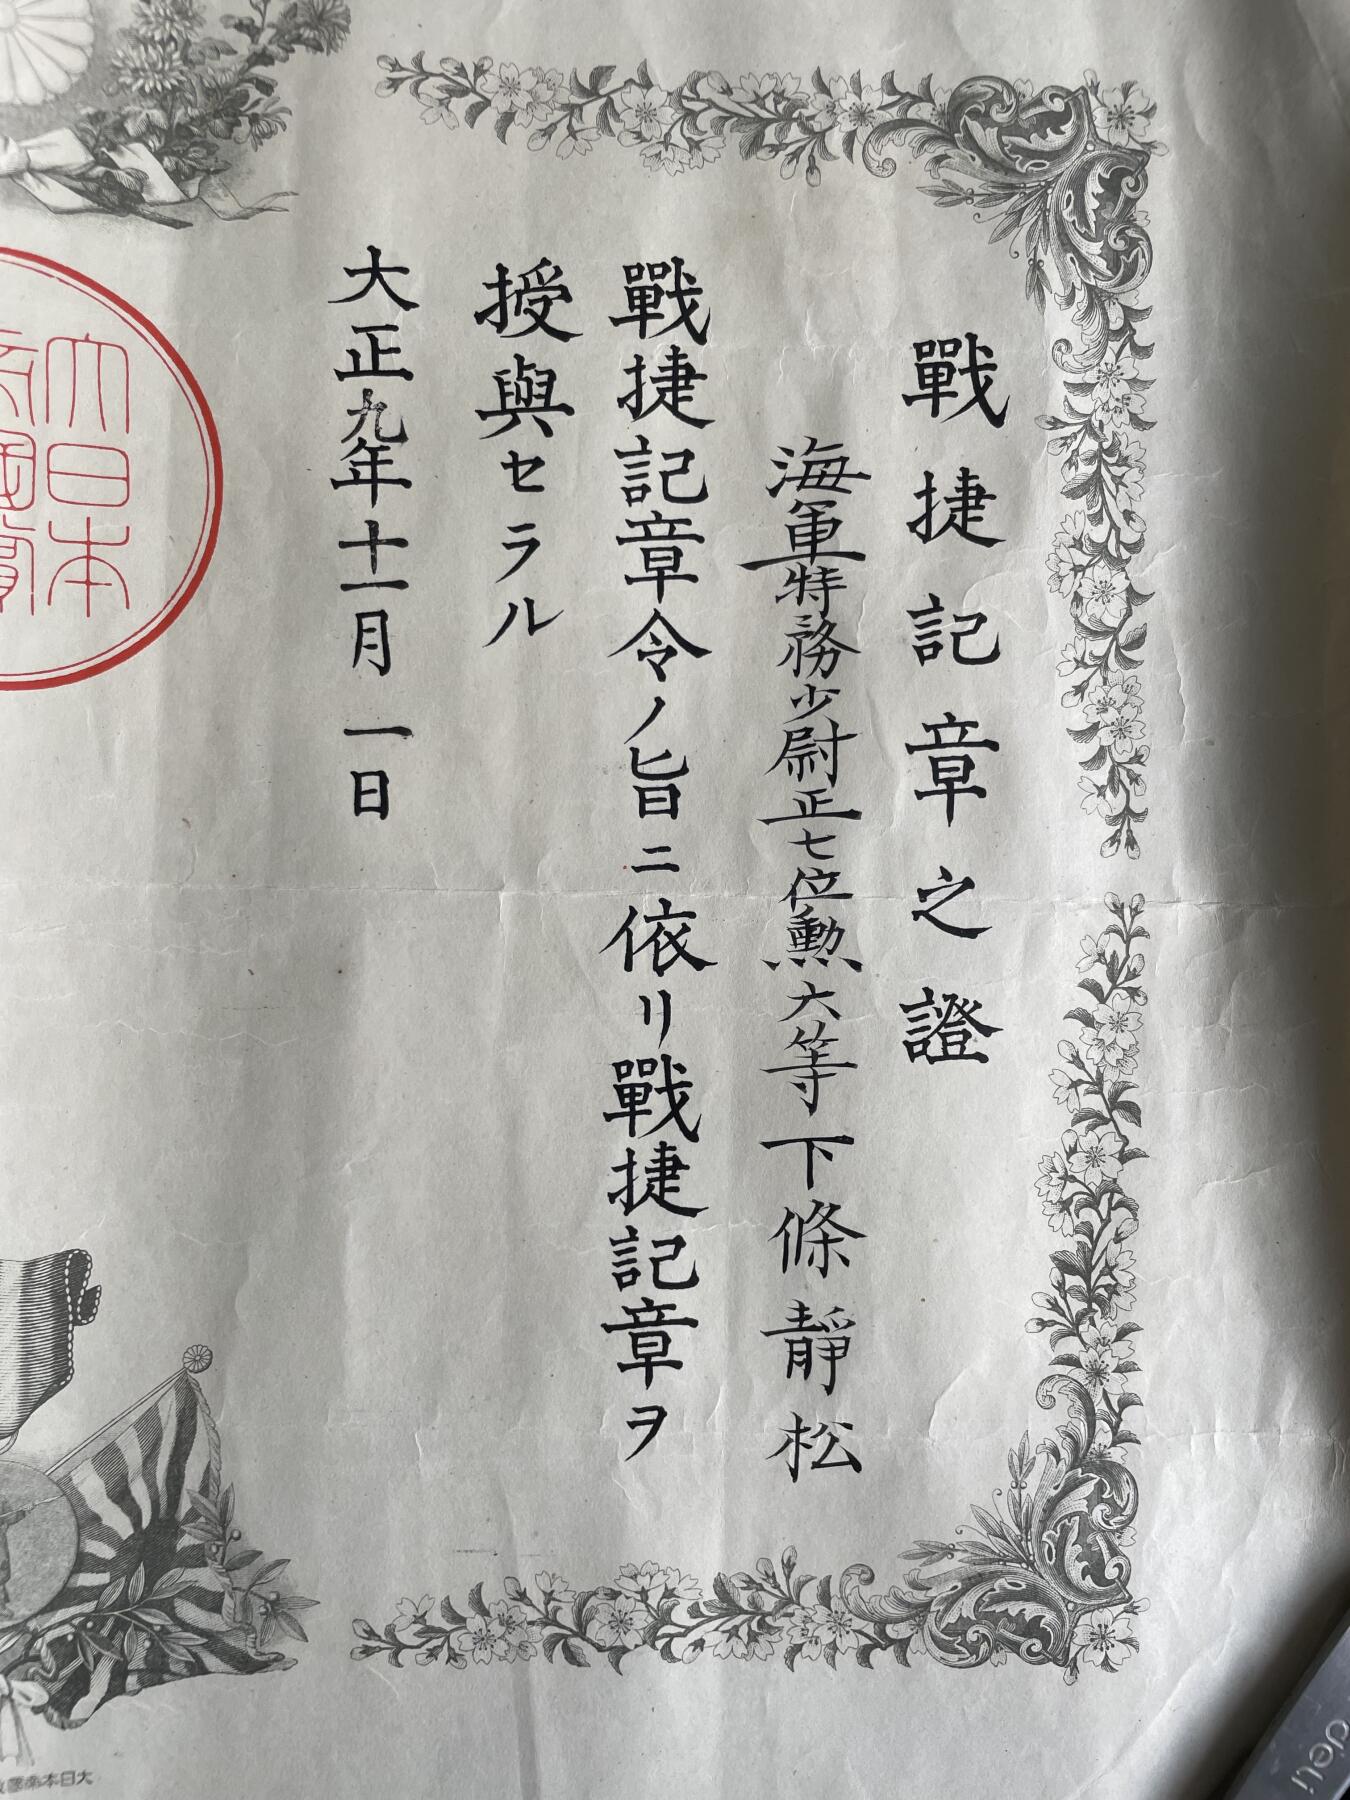 戰捷記章之證
海軍特務少尉正七位勲六等下條靜松
戰捷記章令ノ旨ニ依リ戰捷記章ヲ
授與セラル
大正九年十一月一日
大日本
國璽
大日本帝國政
deli